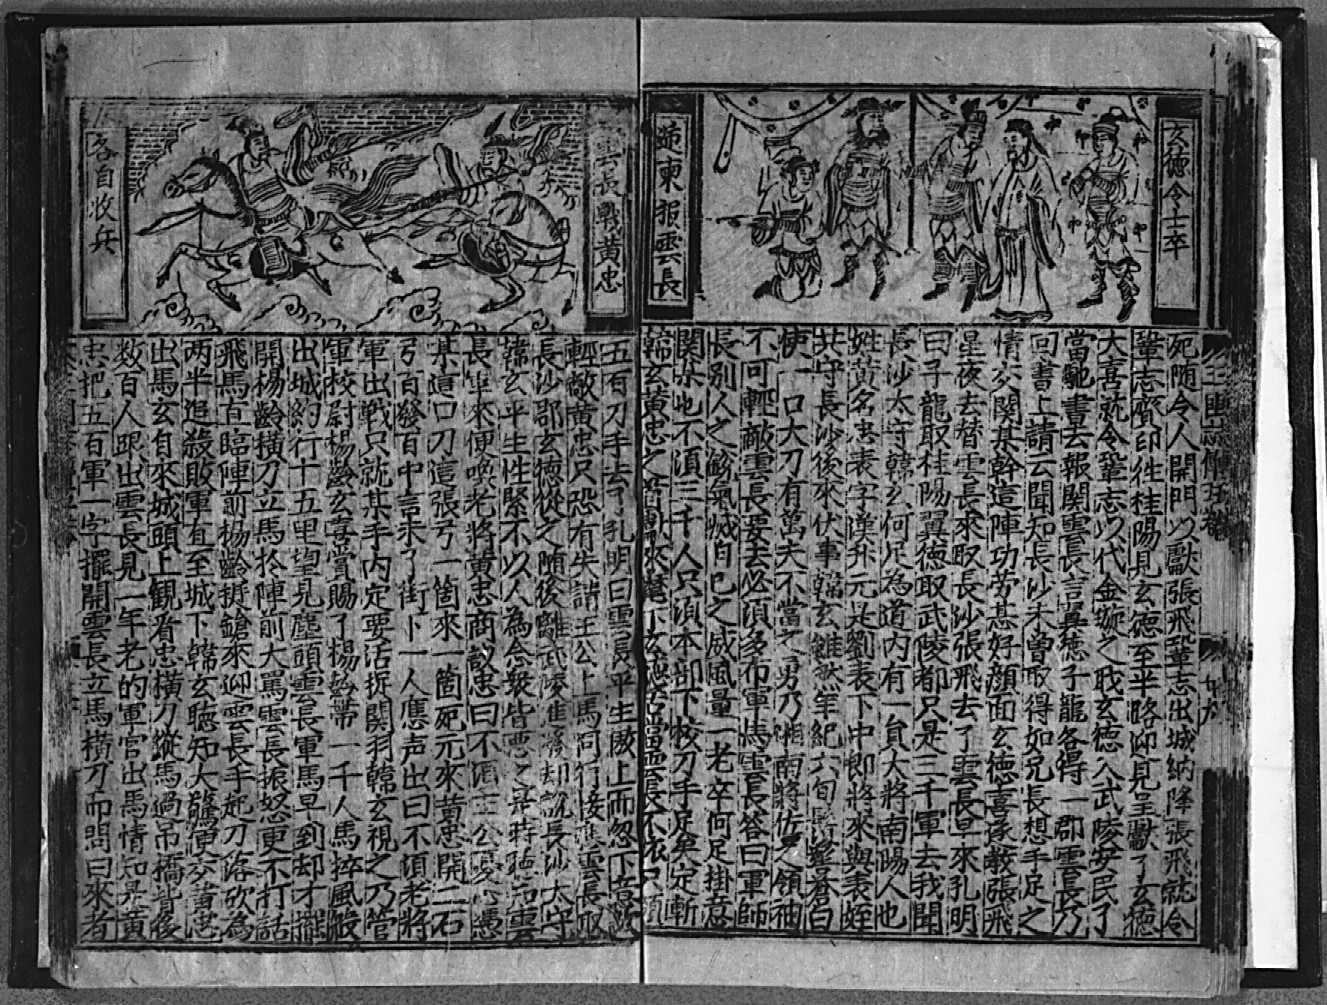 玄德令士卒
報雲長
死随令人開門以獻張飛鞏志出城納降張飛就令
鞏志賫印往桂陽見玄德至半路仰見呈獻了玄德
大喜就令鞏志以代金旋之职玄德入武陵安民了
當馳書去報関雲長言翼德子龍各得一郡雲長乃
回書上請云聞知長沙未曾取得如兄長想手足之
情交関某幹這陣功劳甚好顔面玄德喜遂教張飛
星夜去替雲長來取長沙張飛去了雲長早來孔明
曰子龍取桂陽翼德取武陵都只是三千軍去我聞
長沙太守韓玄何足為道内有一員大將南陽人也
姓黄名忠表字漢升元是劉表下中郎將來與表姪
共守長沙後來伏事韓玄雖然年紀六旬鬚髮蒼白
使一口大刀有萬夫不當之勇乃湘南將佐之領袖
不可輕敵雲長要去必須多布軍馬雲長答曰軍師
長别人之鋭氣滅自己之威風量一老卒何足掛意
関某也不須三千人只須本部下校刀手足矣定斬
韓玄黄忠之首來麾下玄德苦當雲長不依只領
雲長戰黄忠
各自收兵
五百刀手去了孔明曰雲長平生傲上而忽下意欲
輕敵黄忠只恐有失請主公上馬同行接應雲長取
長沙郡玄德從之随後離武陵進發却說長沙太守
韓玄平生性緊不以人為念衆皆惡之是時聽知雲
長軍來便喚老將黄忠商議忠曰不須主公憂心憑
某這口刀這張弓一箇來一箇死元來黄忠開二石
弓百發百中言未了街下一人應声出曰不須老將
軍出戰只就某手内定要活捉関羽韓玄視之乃管
軍校尉楊齡玄喜賞賜了楊齡帶一千人馬捽風般
出城約行十五里望見塵頭雲長軍馬早到却才擺
開楊齡橫刀立馬於陣前大罵雲長振怒更不打話
飛馬直臨陣前楊齡挺鎗來迎雲長手起刀落砍為
两半追殺敗軍直至城下韓玄聴知大驚便交黄忠
出馬玄自來城頭上観看忠橫刀縱馬過吊橋背後
数百人跟出雲長見一年老的軍官出馬情知是黄
忠把五百軍一字擺開雲長立馬橫刀而問曰來者